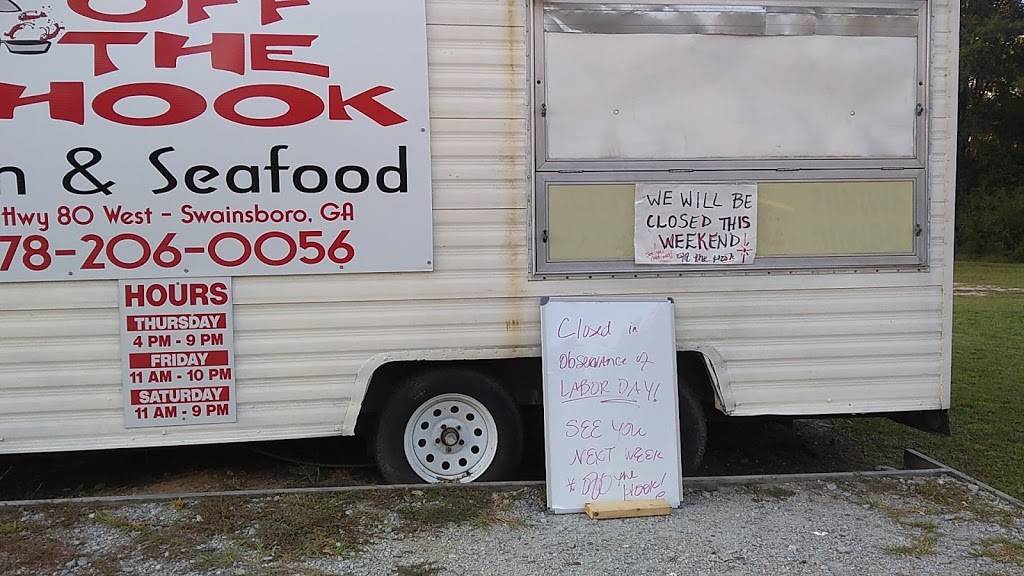 OFF
THE
HOOK
& Seafood
Hwy 80 West - Swainsboro, GA
78-206-0056
HOURS
THURSDAY
4 PM - 9 PM
FRIDAY
11 AM - 10 PM
SATURDAY
11 AM - 9 PM
WE WILL BE
CLOSED THIS
WEEKEND
off the Hook
Closed in
Observance of
LABOR DAY!
SEE YOU
NEXT WEEK
* Off the
Hook!